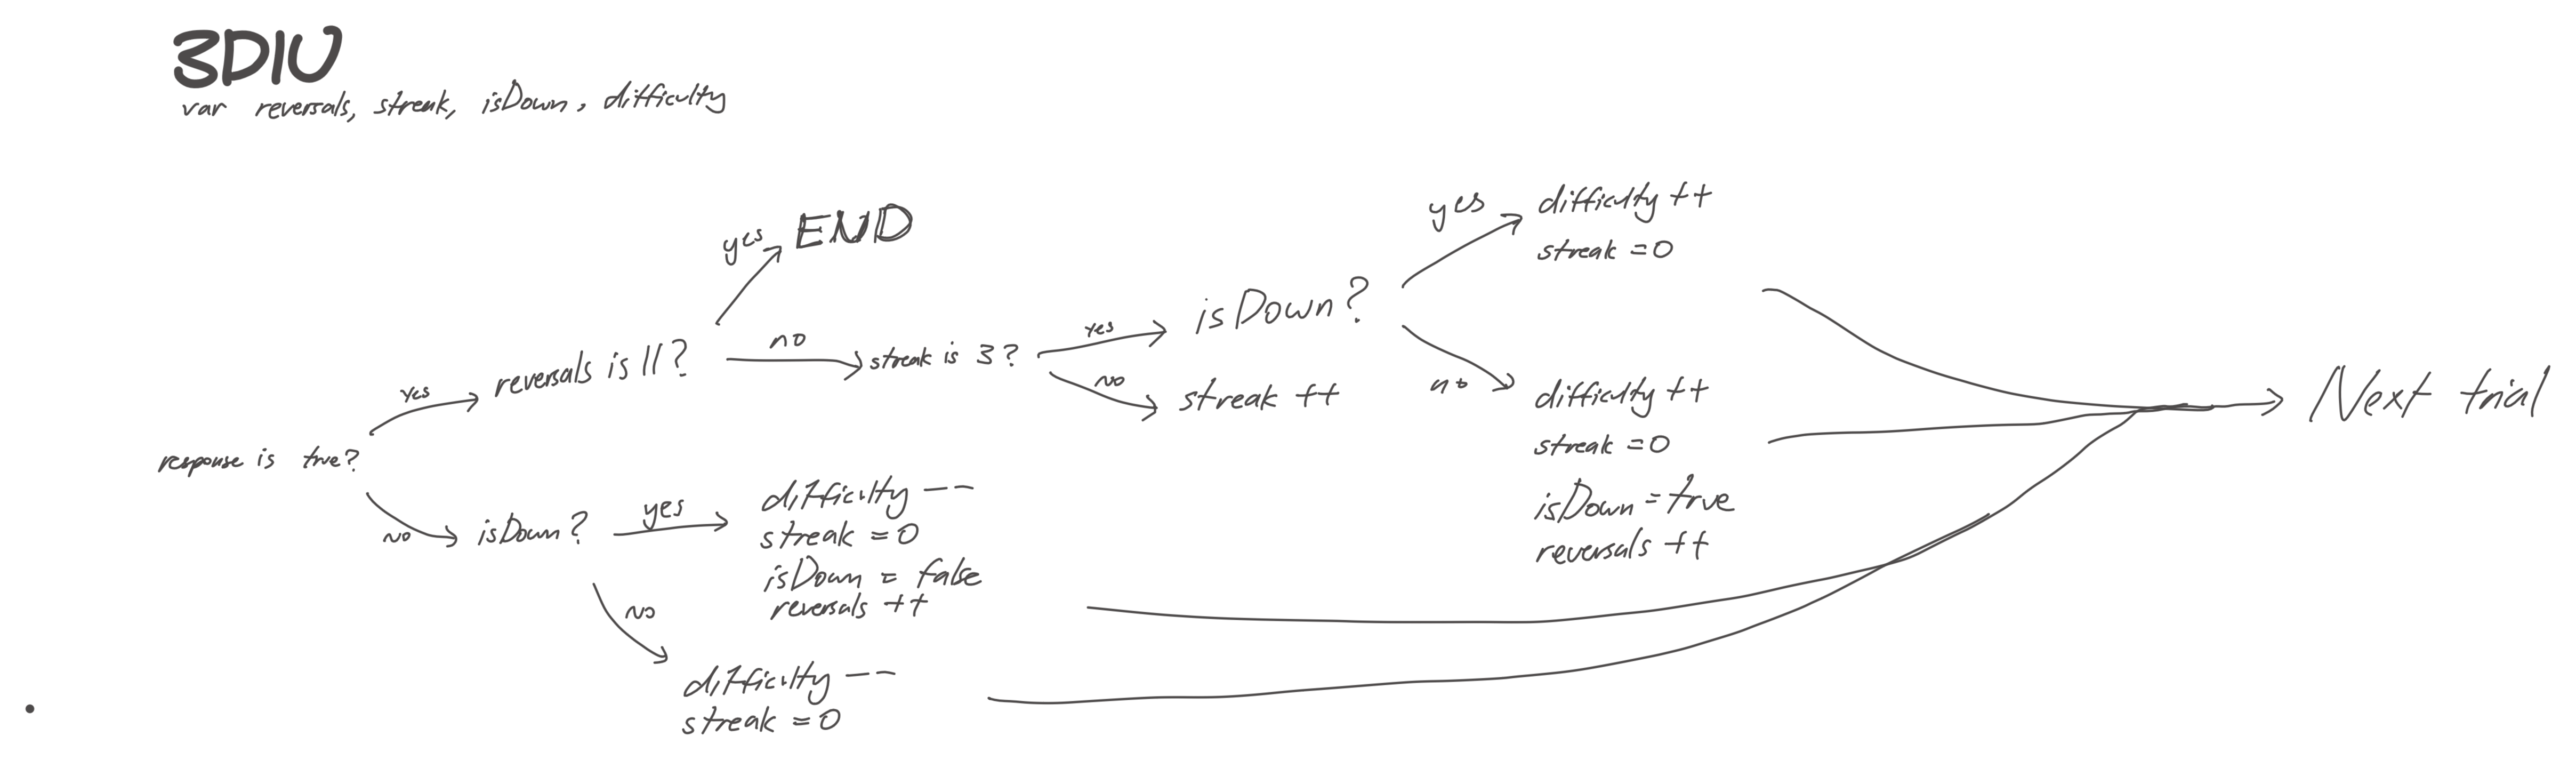 3D1U
var reversals, streak, isDown, difficulty
response is true?
yes
reversals is 11?
yes
END
no
streak is 3?
yes
isDown?
yes
difficulty ++
streak = 0
no
difficulty ++
streak = 0
isDown = true
reversals ++
no
streak ++
no
isDown?
yes
difficulty --
streak = 0
isDown = false
reversals ++
no
difficulty --
streak = 0
Next trial